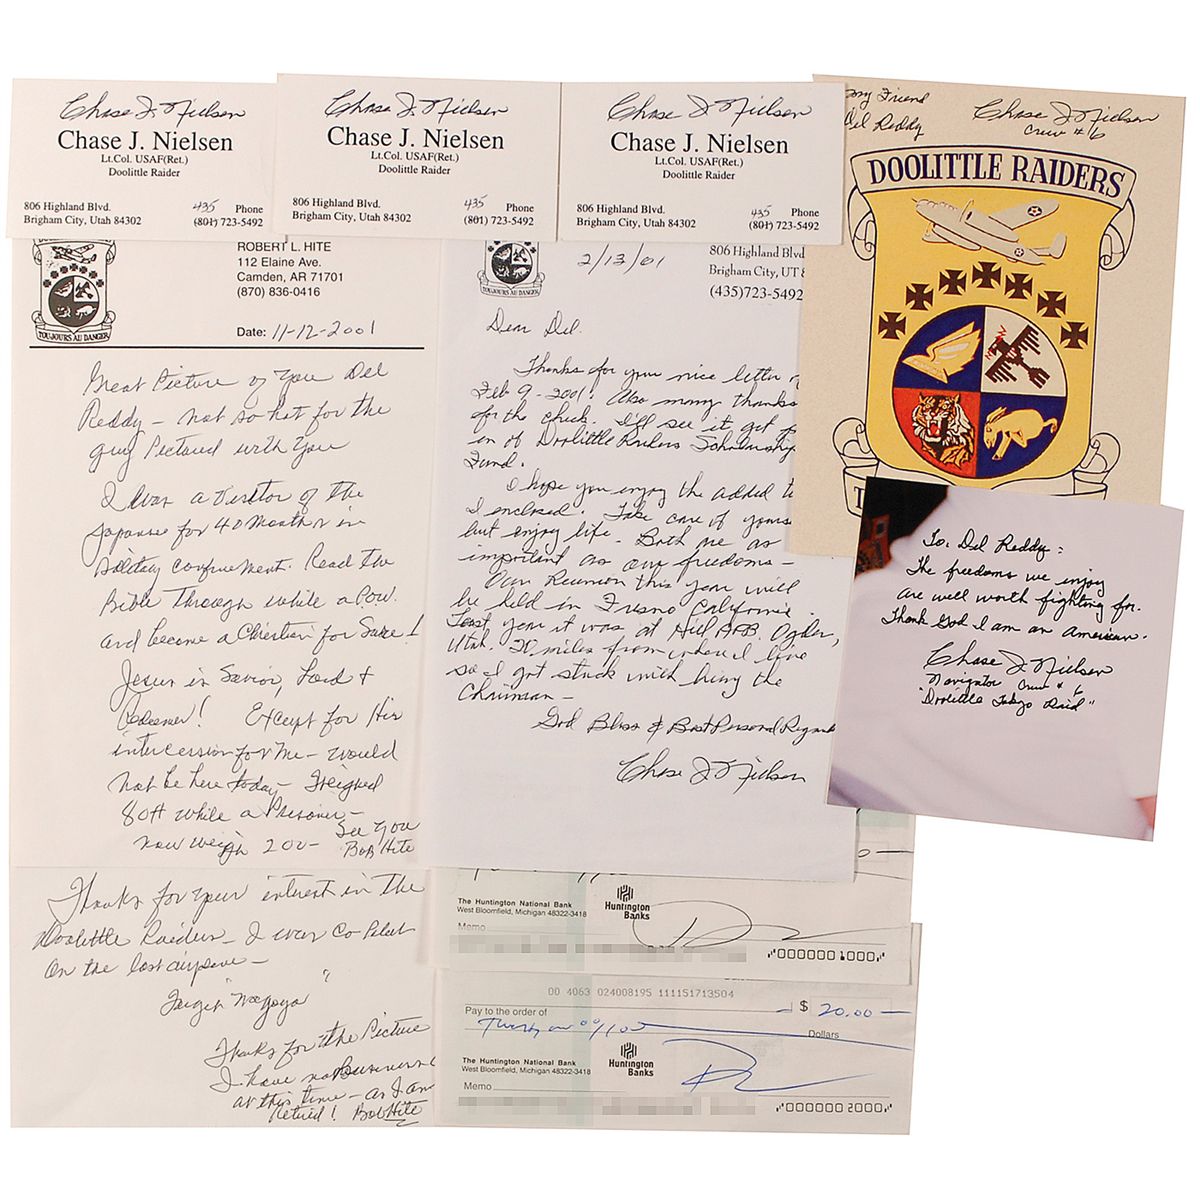 Chase J. Nielsen
Chase J. Nielsen
Lt.Col. USAF(Ret.)
Doolittle Raider
806 Highland Blvd.
Brigham City, Utah 84302
435 Phone
(801) 723-5492
Chase J. Nielsen
Chase J. Nielsen
Lt.Col. USAF(Ret.)
Doolittle Raider
806 Highland Blvd.
Brigham City, Utah 84302
435 Phone
(801) 723-5492
Chase J. Nielsen
Chase J. Nielsen
Lt.Col. USAF(Ret.)
Doolittle Raider
806 Highland Blvd.
Brigham City, Utah 84302
435 Phone
(801) 723-5492
my Friend
Del Reddy
Chase J. Nielsen
Crew #6
DOOLITTLE RAIDERS
TOUJOURS AU DANGER
ROBERT L. HITE
112 Elaine Ave.
Camden, AR 71701
(870) 836-0416
Date: 11-12-2001
Great Picture of You Del
Reddy - not so hot for the
guy Pictured with You
I was a of the
Japanese for 40 Months in
Solitary confinement. Read the
Bible Through while a POW.
and became a Christian for Sure!
Jesus is Savior, Lord +
Redeemer! Except for His
intercession for Me - would
not be here today - Weighed
80# while a Prisoner -
now weigh 200 -
See You
Bob Hite
Thanks for your interest in the
Doolittle Raiders - I was Co Pilot
On the last airplane -
Target "Nagoya"
Thanks for the Picture
I have no Business
at this time - as I am
retired! Bob Hite
TOUJOURS AU DANGER
806 Highland Blvd
Brigham City, UT 8
(435)723-5492
2/13/01
Dear Del.
Thanks for your nice letter
Feb 9 - 2001. Also many thanks
for the check. I'll see it get
in of Doolittle Raiders Scholarship
Fund.
I hope you enjoy the added
I enclosed. Take care of yours
but enjoy life. Both are as
important as our freedoms -
Our Reunion this year will
be held in Fresno California.
Last year it was at Hill AFB. Ogden,
Utah. 20 miles from where I live
so I got stuck with being the
Chairman -
God Bless & Best Personal Regards
Chase J. Nielsen
To: Del Reddy:
The freedoms we enjoy
are well worth fighting for.
Thank God I am an American.
Chase J. Nielsen
Navigator Crew #6
"Doolittle Tokyo Raid"
The Huntington National Bank
West Bloomfield, Michigan 48322-3418
Huntington
Banks
Memo
000000 1000
00 4063 024008195 111151713504
Pay to the order of
$ 20.00
Twenty and 00/100
Dollars
The Huntington National Bank
West Bloomfield, Michigan 48322-3418
Huntington
Banks
Memo
000000 2000